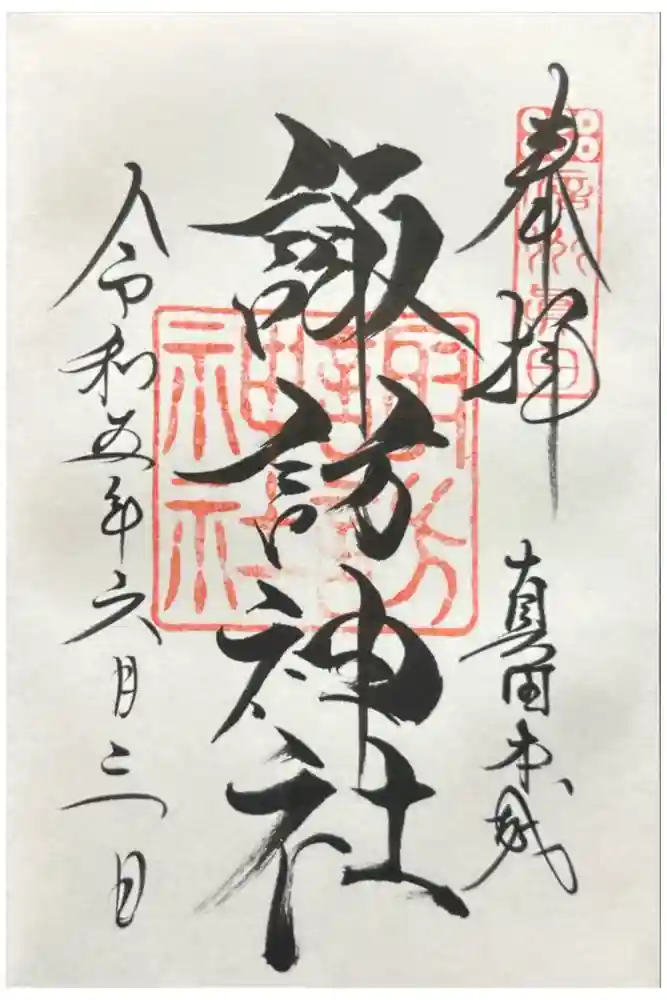 奉拝
信州眞田
真田本城
諏訪神社
諏訪神社
令和五年六月三日